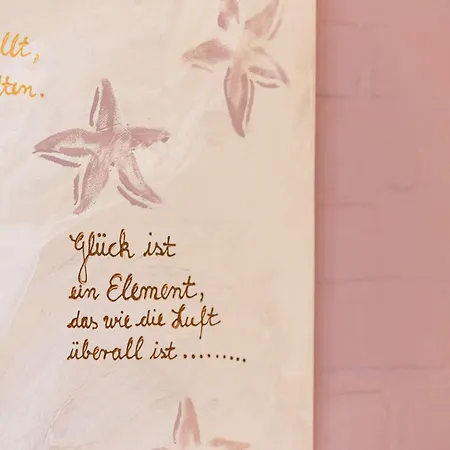 llt,
lten.
Glück ist
ein Element,
das wie die Luft
überall ist.........